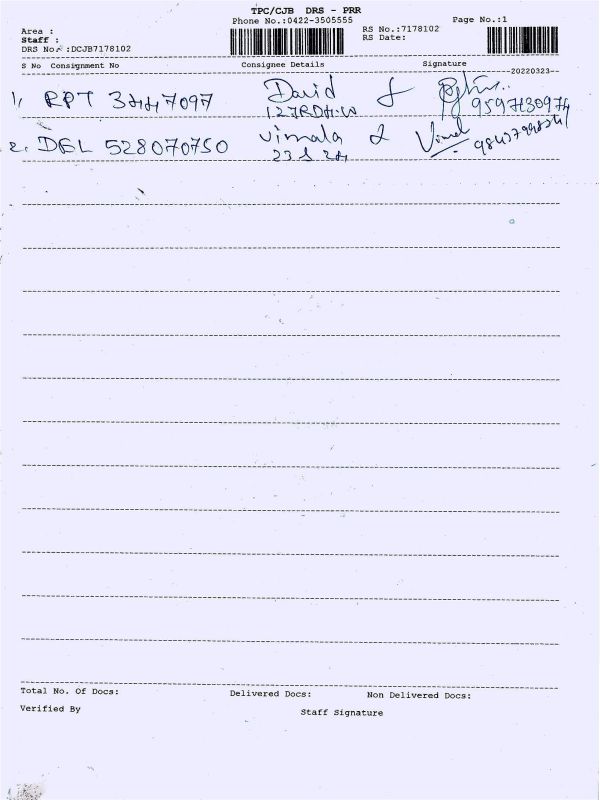 TPC/CJB DRS - PRR
Phone No.:0422-3505555
Page No.:1
Area :
Staff :
DRS No. :DCJB7178102
RS No.:7178102
RS Date:
S No Consignment No Consignee Details Signature
20220323
1, RPT 3447097 David
9597130974
2. DEL 528070750 Vimala Vimal
Total No. Of Docs: Delivered Docs: Non Delivered Docs:
Verified By Staff Signature